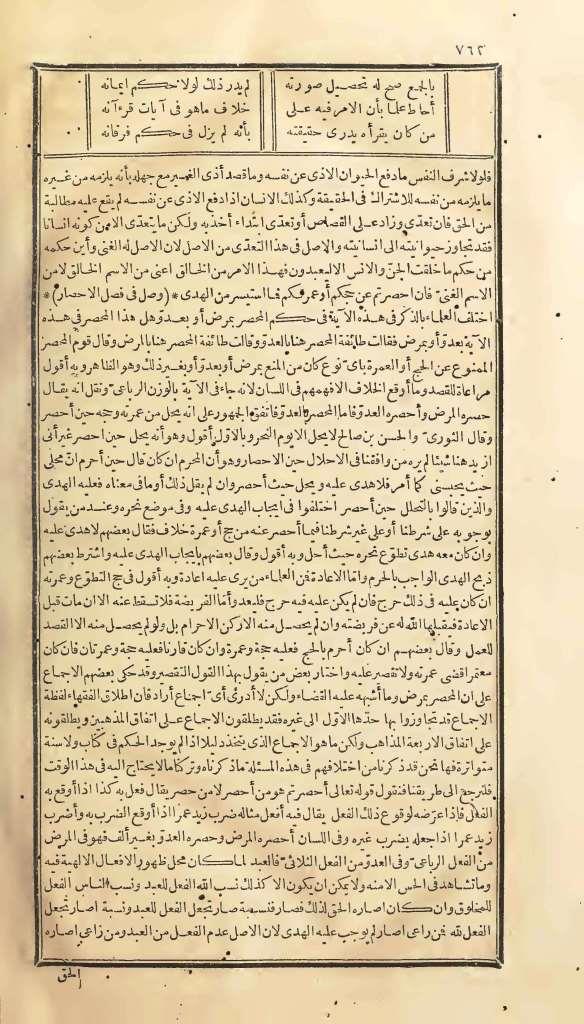 ٧٦٢
بالجمع صح له تحصيل صورته لم يدر ذلك لولا حكم ايمانه
أحاط علما بأن الامر فيه على خلاف ما هو فى آيات قرءآنه
من كان يقرأه يدرى حقيقته بأنه لم يزل فى حكم فرقانه
فلولا شرف النفس ما دفع الحيوان الاذى عن نفسه وما قصد أذى الغير مع جهله بأنه يلزمه من غيره
ما يلزمه من نفسه للاشتراك فى الحقيقة وكذلك الانسان اذا دفع الاذى عن نفسه لم يقع عليه مطالبة
من الحق فان تعدّى وزاد على القصاص أو تعدّى ابتداء أخذ به ولكن ما يتعدّى الا من كونه انسانا
فقد تجاوز حيوانيته الى انسانيته والاصل فى هذا التعدّى من الاصل لان الاصل له الغنى وأين حكمه
من حكم ما خلقت الجنّ والانس الا ليعبدون فهذا الامر من الخالق اعنى من الاسم الخالق لا من
الاسم الغنىّ فان احصرتم عن حجكم أو عمرتكم فما استيسر من الهدى * (وصل فى فصل الاحصار) *
اختلف العلماء بالذكر فى هذه الآية فى حكم المحصر بمرض أو بعدوّ وهل هذا المحصر فى هذه
الآية بعدوّ أو بمرض فقالت طائفة المحصر هنا بالعدوّ وقالت طائفة المحصر هنا بالمرض وقال قوم المحصر
الممنوع عن الحج أو العمرة باىّ نوع كان من المنع بمرض أو بعدوّ أو بغير ذلك وهو الظاهر وبه أقول
مراعاة للقصد وما أوقع الخلاف الا فهمهم فى اللسان لانه جاء فى الآية بالوزن الرباعىّ ونقل انه يقال
حصره المرض وأحصره العدوّ فاما المحصر بالعدوّ فاتفق الجمهور على انه يحل من عمرته وحجه حين أحصر
وقال الثورىّ والحسن بن صالح لا يحل الا يوم النحر وبالاول أقول وهو أنه يحل حين احصر غير أنى
أزيد هنا شيئا لم يره من وافقنا فى الاحلال حين الاحصار وهو أن المحرم ان كان قال حين أحرم انّ محلى
حيث يحبسنى كما أمر فلا هدى عليه ويحل حيث أحصر وان لم يقل ذلك أو ما فى معناه فعليه الهدى
والذين قالوا بالتحلل حين أحصر اختلفوا فى ايجاب الهدى عليه وفى موضع نحره وعند من يقول
بوجوبه على شرطنا أو على غير شرطنا فيما أحصر عنه من حج أو عمرة خلاف فقال بعضهم لا هدى عليه
وان كان معه هدى تطوّع نحره حيث أحل وبه أقول وقال بعضهم بايجاب الهدى عليه واشترط بعضهم
ذبح الهدى الواجب بالحرم وامّا الاعادة فمن العلماء من يرى عليه اعادة وبه أقول فى حج التطوّع وعمرته
ان كان عليه فى ذلك حرج فان لم يكن عليه فيه حرج فليعد وأمّا الفريضة فلا تسقط عنه الا ان مات قبل
الاعادة فيقبلها الله له عن فريضته وان لم يحصل منه الا ركن الاحرام بل ولو لم يحصل منه الا القصد
للعمل وقال بعضهم ان كان أحرم بالحج فعليه حجة وعمرة وان كان قارنا فعليه حجة وعمرتان فان كان
معتمرا قضى عمرته ولا تقصير عليه واختار بعض من يقول بهذا القول التقصير وقد حكى بعضهم الاجماع
على ان المحصر بمرض وما أشبهه عليه القضاء ولكن لا أدرى أىّ اجماع أراد فان اطلاق الفقهاء لفظة
الاجماع قد تجاوزوا بها حدّها الاوّل الى غيره فقد يطلقون الاجماع على اتفاق المذهبين ويطلقونه
على اتفاق الاربعة المذاهب ولكن ما هو الاجماع الذى يتخذ دليلا اذا لم يوجد الحكم فى كتاب ولا سنة
متواترة فها نحن قد ذكرنا من اختلافهم فى هذه المسئلة ما ذكرناه وتركنا ما لا يحتاج اليه فى هذا الوقت
فلنرجع الى طريقنا فنقول قوله تعالى أحصرتم هو من أحصر لا من حصر يقال فعل به كذا اذا أوقع به
الفعل فاذا عرّضه لوقوع ذلك الفعل يقال فيه أفعل مثاله ضرب زيد عمرا اذا أوقع الضرب به وأضرب
زيد عمرا اذا جعله يضرب غيره وفى اللسان أحصره المرض وحصره العدوّ بغير ألف فهو فى المرض
من الفعل الرباعىّ وفى العدوّ من الفعل الثلاثىّ فالعبد لما كان محل ظهور الافعال الالهية فيه
وما تشاهد فى الحس الا منه ولا يمكن ان يكون الا كذلك نسب الله الفعل للعبد ونسب الناس الفعل
للمخلوق وان كان اصاره الحق لذلك فصار فنسبة صار تجعل الفعل للعبد ونسبة اصار تجعل
الفعل لله فمن راعى اصار لم يوجب عليه الهدى لان الاصل عدم الفعل من العبد ومن راعى اصاره
الحق